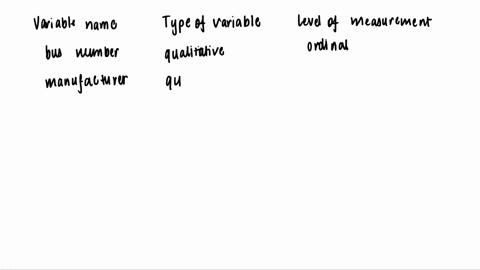 Variable name Type of variable level of measurement
bus number qualitative ordinal
manufacturer qu